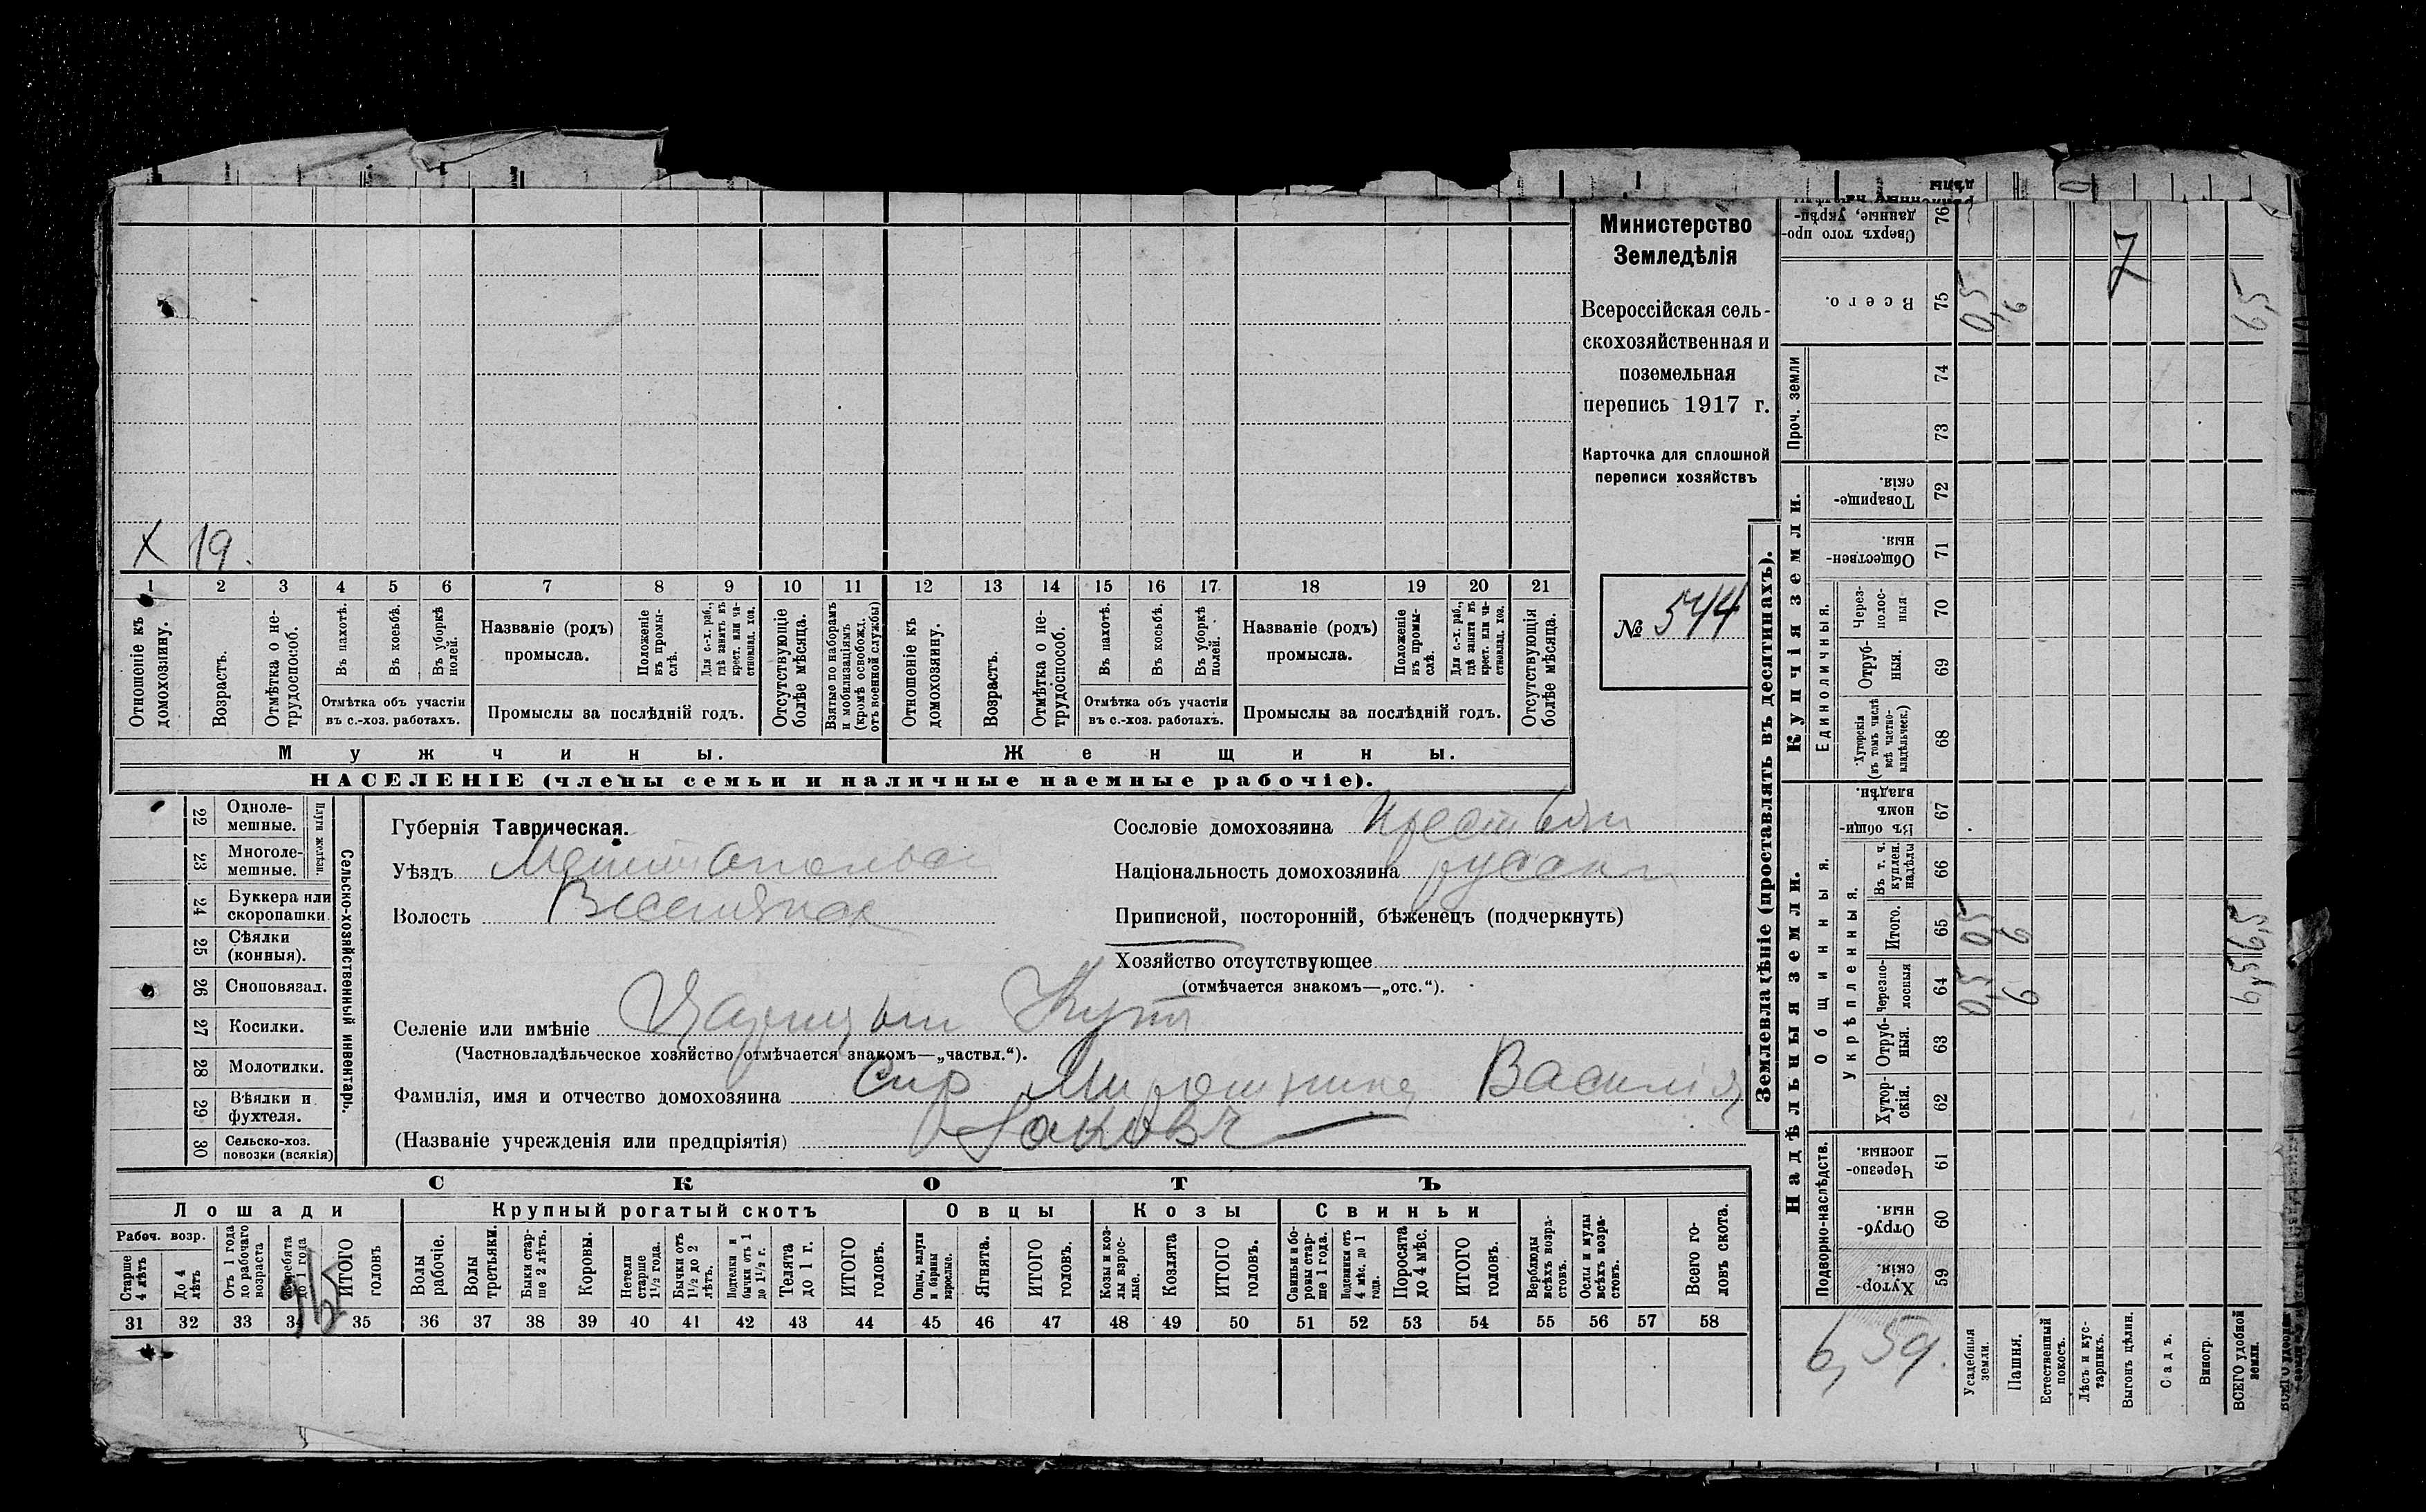 X 19.
1 2 3 4 5 6 7 8 9 10 11 12 13 14 15 16 17 18 19 20 21
Отношеніе къ домохозяину.
Возрастъ.
Отмѣтка о не-трудоспособ.
Въ пахотѣ.
Въ косьбѣ.
Въ уборкѣ полей.
Отмѣтка объ участіи
въ с.-хоз. работахъ.
Названіе (родъ)
промысла.
Положеніе въ промы-слѣ.
Для с.-х. раб., гдѣ занятъ въ крест. или ча-стновлад. хоз.
Промыслы за послѣдній годъ.
Отсутствующіе болѣе мѣсяца.
Взятые по наборамъ и мобилизаціямъ (кромѣ освобожд. отъ военной службы)
Отношеніе къ домохозяину.
Возрастъ.
Отмѣтка о не-трудоспособ.
Въ пахотѣ.
Въ косьбѣ.
Въ уборкѣ полей.
Отмѣтка объ участіи
въ с.-хоз. работахъ.
Названіе (родъ)
промысла.
Положеніе въ промы-слѣ.
Для с.-х. раб., гдѣ занята въ крест. или ча-стновлад. хоз.
Промыслы за послѣдній годъ.
Отсутствующія болѣе мѣсяца.
Мужчины.
Женщины.
НАСЕЛЕНІЕ (члены семьи и наличные наемные рабочіе).
Министерство
Земледѣлія
Всероссійская сель-
скохозяйственная и
поземельная
перепись 1917 г.
Карточка для сплошной
переписи хозяйствъ
№ 544
Сельско-хозяйственный инвентарь.
Плуги желѣзн.
22 Одноле-мешные.
23 Многоле-мешные.
24 Буккера или скоропашки.
25 Сѣялки (конныя).
26 Сноповязал.
27 Косилки.
28 Молотилки.
29 Вѣялки и фухтеля.
30 Сельско-хоз. повозки (всякія)
Губернія Таврическая.
Уѣздъ
Волость
Сословіе домохозяина
Національность домохозяина
Приписной, посторонній, бѣженецъ (подчеркнуть)
Хозяйство отсутствующее
(отмѣчается знакомъ—„отс.“).
Селеніе или имѣніе Кутъ
(Частновладѣльческое хозяйство отмѣчается знакомъ—„частвл.“).
Фамилія, имя и отчество домохозяина Сир Василія
(Названіе учрежденія или предпріятія)
СКОТЪ
Лошади
Крупный рогатый скотъ
Овцы
Козы
Свиньи
Рабоч. возр.
Старше 4 лѣтъ
До 4 лѣтъ
Отъ 1 года до рабочаго возраста
Жеребята до 1 года
ИТОГО головъ
Волы рабочіе.
Волы третьяки.
Быки стар-ше 2 лѣтъ.
Коровы.
Нетели старше 1½ года.
Бычки отъ 1½ до 2 лѣтъ.
Подтелки и бычки отъ 1 до 1½ г.
Телята до 1 г.
ИТОГО головъ.
Овцы, валухи и бараны взрослые.
Ягнята.
ИТОГО головъ.
Козы и коз-лы взрос-лые.
Козлята
ИТОГО головъ.
Свиньи и бо-ровы стар-ше 1 года.
Подсвинки отъ 4 мѣс. до 1 года.
Поросята до 4 мѣс.
ИТОГО головъ.
Верблюды всѣхъ возра-стовъ.
Ослы и мулы всѣхъ возра-стовъ.
Всего го-ловъ скота.
31 32 33 34 35 36 37 38 39 40 41 42 43 44 45 46 47 48 49 50 51 52 53 54 55 56 57 58
Землевладѣніе (проставлять въ десятинахъ).
Купчія земли.
Надѣльныя земли.
Проч. земли
Единоличныя.
Общинныя.
Укрѣпленныя.
Подворно-наслѣдств.
Сверхъ того про-данные, укрѣп- 76
Всего. 75 0,5 6 7 6,5
74
73
Товарище-скія. 72
Обществен-ныя. 71
Через-полос-ныя 70
Отруб-ныя. 69
Хуторскія (въ томъ числѣ всѣ частно-владѣльческ.) 68
Въ общин-номъ владѣн. 67
Въ т. ч. куплен. надѣлы 66
Итого. 65 0,5 6 6,5
Черезпо-лосныя 64 0,5 6 6,5
Отруб-ныя. 63
Хутор-скія. 62
Черезпо-лосныя. 61
Отруб-ныя. 60
Хутор-скія. 59
Усадебная земли.
Пашня.
Естественный покосъ.
Лѣсъ и кус-тарникъ.
Выгонъ цѣлин.
Садъ.
Виногр.
ВСЕГО удобной земли.